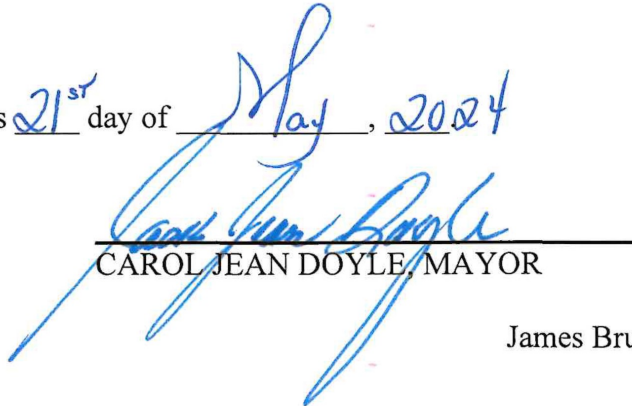 s 21st day of May, 2024
Carol Jean Doyle
CAROL JEAN DOYLE, MAYOR
James Bru